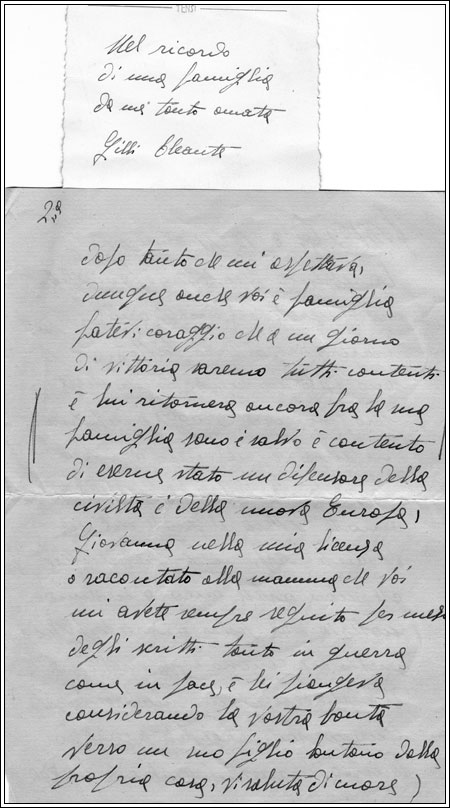 TENSI
Nel ricordo
di una famiglia
da me tanto amata
Gilli Cleante
2ª
dopo tanto che mi aspettava,
dunque anche voi è famiglia
fatevi coraggio che a un giorno
di vittoria saremo tutti contenti
è lui ritornera ancora fra la sua
famiglia sano è salvo è contento
di eserne stato un difensore della
civiltà è della nuova Europa,
Giovanna nella mia licenza
o racontato alla mamma che voi
mi avete sempre seguito per mezo
degli scritti tanto in guerra
come in pace, è lei piangeva
considerando la vostra bontà
verso un suo figlio lontano dalla
propria casa, vi saluta di cuore)